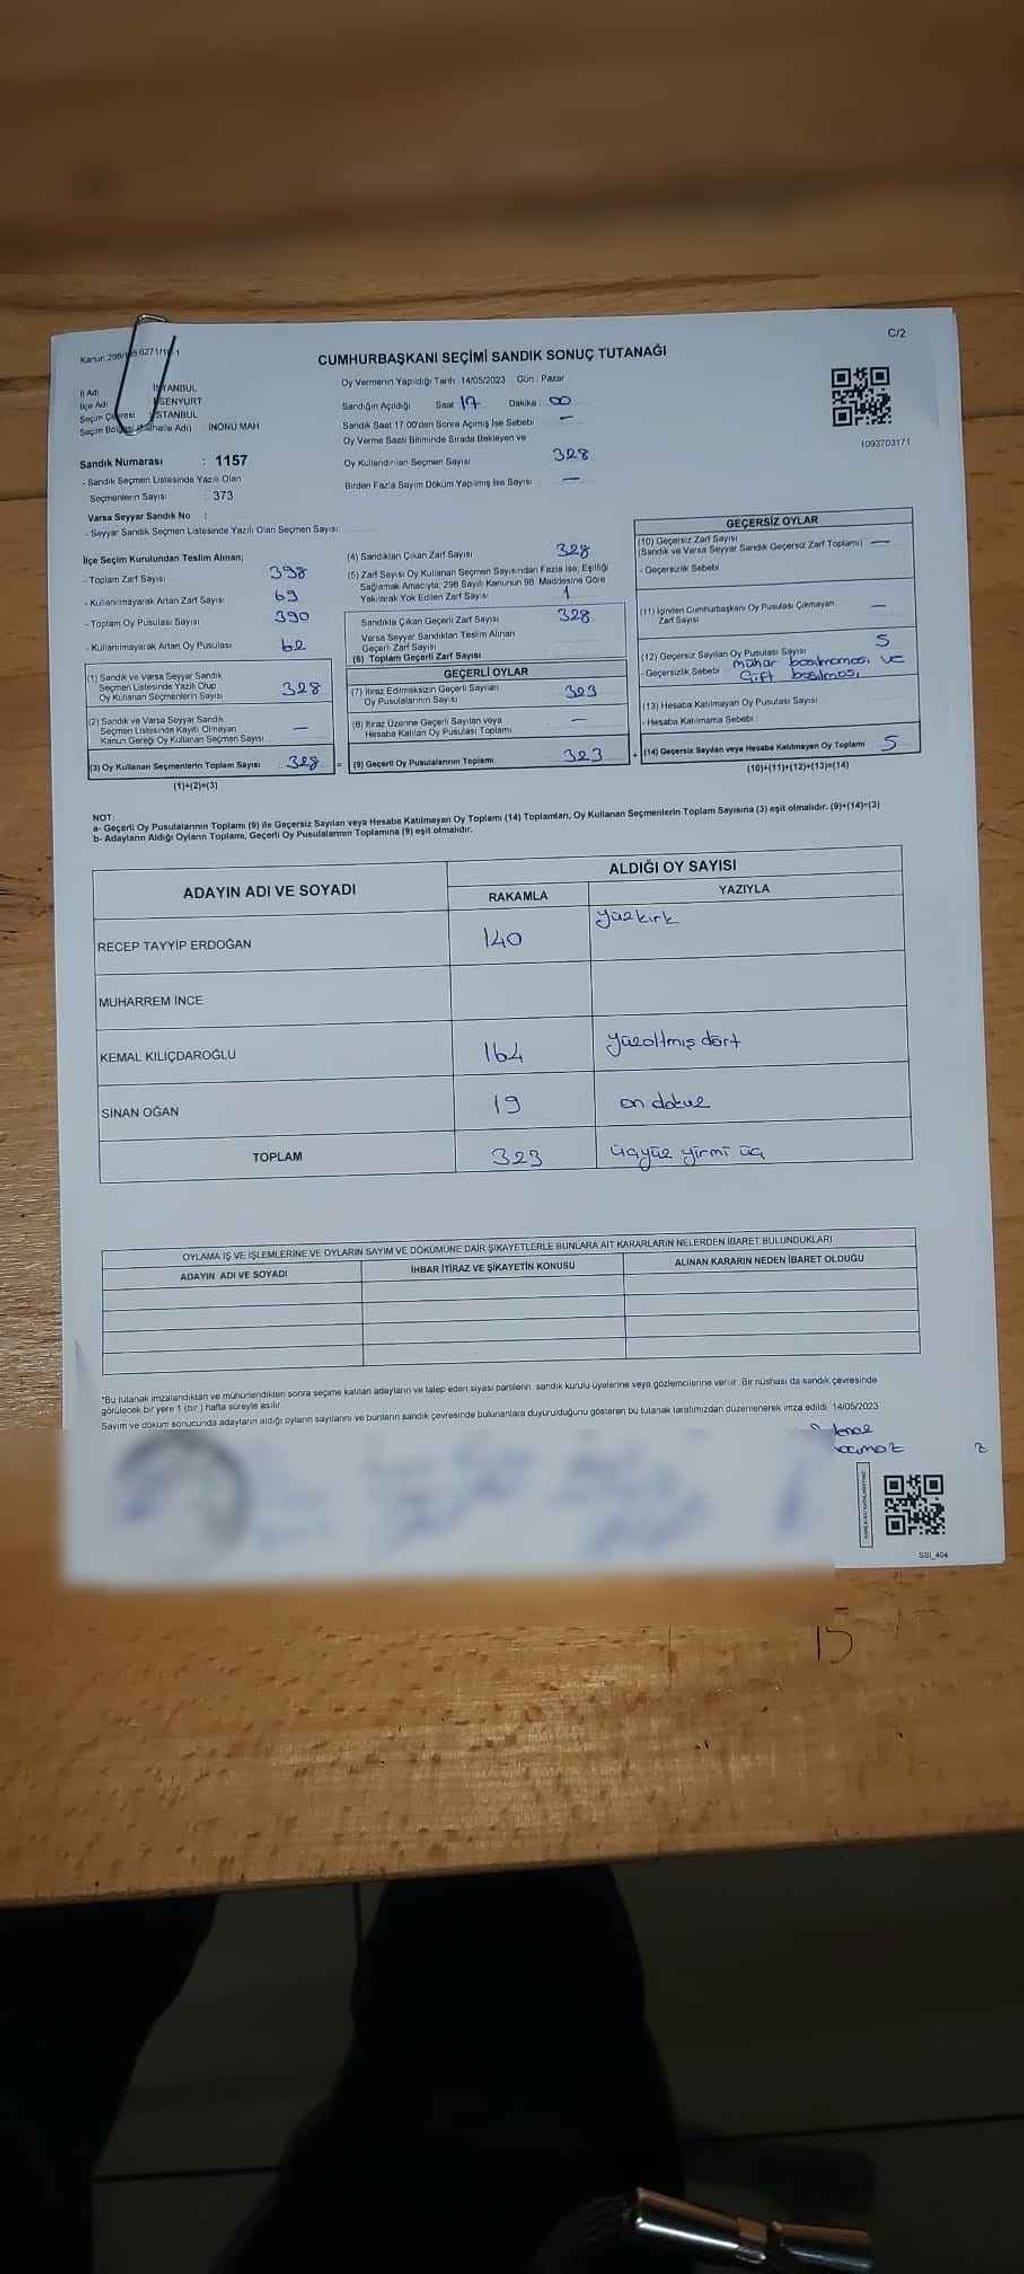 C/2
CUMHURBAŞKANI SEÇİMİ SANDIK SONUÇ TUTANAĞI
Oy Vermenin Yapıldığı Tarih :14/05/2023 Gün : Pazar
İl Adı İSTANBUL
İlçe Adı ESENYURT
Seçim Çevresi İSTANBUL
Seçim Bölgesi (Mahalle Adı) İNÖNÜ MAH
Sandığın Açıldığı Saat 17 Dakika : 00
Sandık Saat 17.00'den Sonra Açımış İse Sebebi —
Oy Verme Saati Bitiminde Sırada Bekleyen ve
Oy Kullandırılan Seçmen Sayısı 328
Birden Fazla Sayım Döküm Yapılmış İse Sayısı —
1093703171
Sandık Numarası : 1157
- Sandık Seçmen Listesinde Yazılı Olan
Seçmenlerin Sayısı : 373
Varsa Seyyar Sandık No :
- Seyyar Sandık Seçmen Listesinde Yazılı Olan Seçmen Sayısı:
İlçe Seçim Kurulundan Teslim Alınan;
- Toplam Zarf Sayısı 398
- Kullanılmayarak Artan Zarf Sayısı 69
- Toplam Oy Pusulası Sayısı 390
- Kullanılmayarak Artan Oy Pusulası 62
(1) Sandık ve Varsa Seyyar Sandık
Seçmen Listesinde Yazılı Olup
Oy Kullanan Seçmenlerin Sayısı 328
(2) Sandık ve Varsa Seyyar Sandık
Seçmen Listesinde Kayıtlı Olmayan
Kanun Gereği Oy Kullanan Seçmen Sayısı —
(3) Oy Kullanan Seçmenlerin Toplam Sayısı 328 =
(1)+(2)=(3)
(4) Sandıktan Çıkan Zarf Sayısı 328
(5) Zarf Sayısı Oy Kullanan Seçmen Sayısından Fazla İse, Eşitliği
Sağlamak Amacıyla, 298 Sayılı Kanunun 98. Maddesine Göre
Yakılarak Yok Edilen Zarf Sayısı 1
Sandıkta Çıkan Geçerli Zarf Sayısı 328
Varsa Seyyar Sandıktan Teslim Alınan
Geçerli Zarf Sayısı
(6) Toplam Geçerli Zarf Sayısı
GEÇERLİ OYLAR
(7) İtiraz Edilmeksizin Geçerli Sayılan
Oy Pusulalarının Sayısı 323
(8) İtiraz Üzerine Geçerli Sayılan veya
Hesaba Katılan Oy Pusulası Toplamı —
(9) Geçerli Oy Pusulalarının Toplamı 323 +
GEÇERSİZ OYLAR
(10) Geçersiz Zarf Sayısı
(Sandık ve Varsa Seyyar Sandık Geçersiz Zarf Toplamı) —
- Geçersizlik Sebebi
(11) İçinden Cumhurbaşkanı Oy Pusulası Çıkmayan
Zarf Sayısı —
(12) Geçersiz Sayılan Oy Pusulası Sayısı 5
- Geçersizlik Sebebi mühür basılmaması ve
Çift basılması
(13) Hesaba Katılmayan Oy Pusulası Sayısı
- Hesaba Katılmama Sebebi :
(14) Geçersiz Sayılan veya Hesaba Katılmayan Oy Toplamı 5
(10)+(11)+(12)+(13)=(14)
NOT:
a- Geçerli Oy Pusulalarının Toplamı (9) ile Geçersiz Sayılan veya Hesaba Katılmayan Oy Toplamı (14) Toplamları, Oy Kullanan Seçmenlerin Toplam Sayısına (3) eşit olmalıdır. (9)+(14)=(3)
b- Adayların Aldığı Oyların Toplamı, Geçerli Oy Pusulalarının Toplamına (9) eşit olmalıdır.
ADAYIN ADI VE SOYADI
ALDIĞI OY SAYISI
RAKAMLA YAZIYLA
RECEP TAYYİP ERDOĞAN 140 yüzkırk
MUHARREM İNCE
KEMAL KILIÇDAROĞLU 164 yüzaltmış dört
SİNAN OĞAN 19 on dokuz
TOPLAM 323 üçyüz yirmi üç
OYLAMA İŞ VE İŞLEMLERİNE VE OYLARIN SAYIM VE DÖKÜMÜNE DAİR ŞİKAYETLERLE BUNLARA AİT KARARLARIN NELERDEN İBARET BULUNDUKLARI
ADAYIN ADI VE SOYADI İHBAR İTİRAZ VE ŞİKAYETİN KONUSU ALINAN KARARIN NEDEN İBARET OLDUĞU
*Bu tutanak imzalandıktan ve mühürlendikten sonra seçime katılan adayların ve talep eden siyasi partilerin sandık kurulu üyelerine veya gözlemcilerine verilir. Bir nüshası da sandık çevresinde
görülecek bir yere 1 (bir ) hafta süreyle asılır.
Sayım ve döküm sonucunda adayların aldığı oyların sayılarını ve bunların sandık çevresinde bulunanlara duyurulduğunu gösteren bu tutanak tarafımızdan düzenlenerek imza edildi. 14/05/2023
SSI_404
15